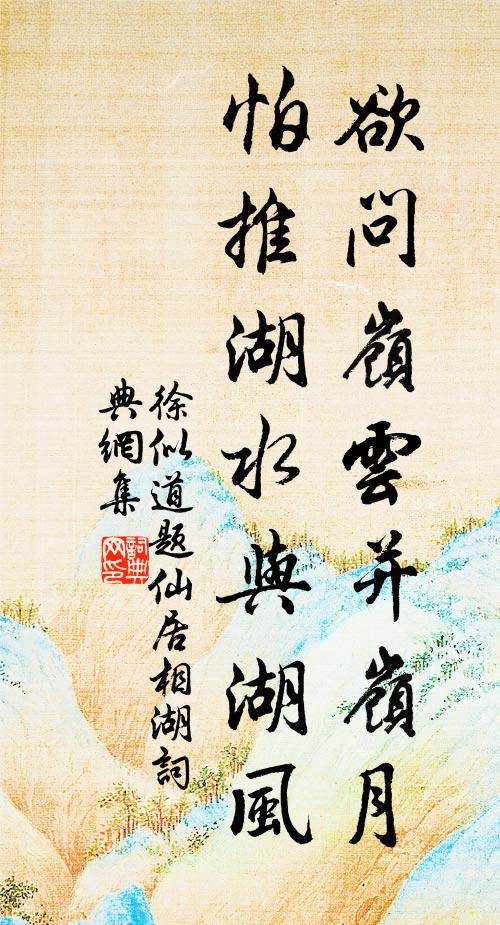 欲問嶺雲并嶺月
怕推湖水與湖風
徐似道题仙居相湖詞
典網集
詞典
网印